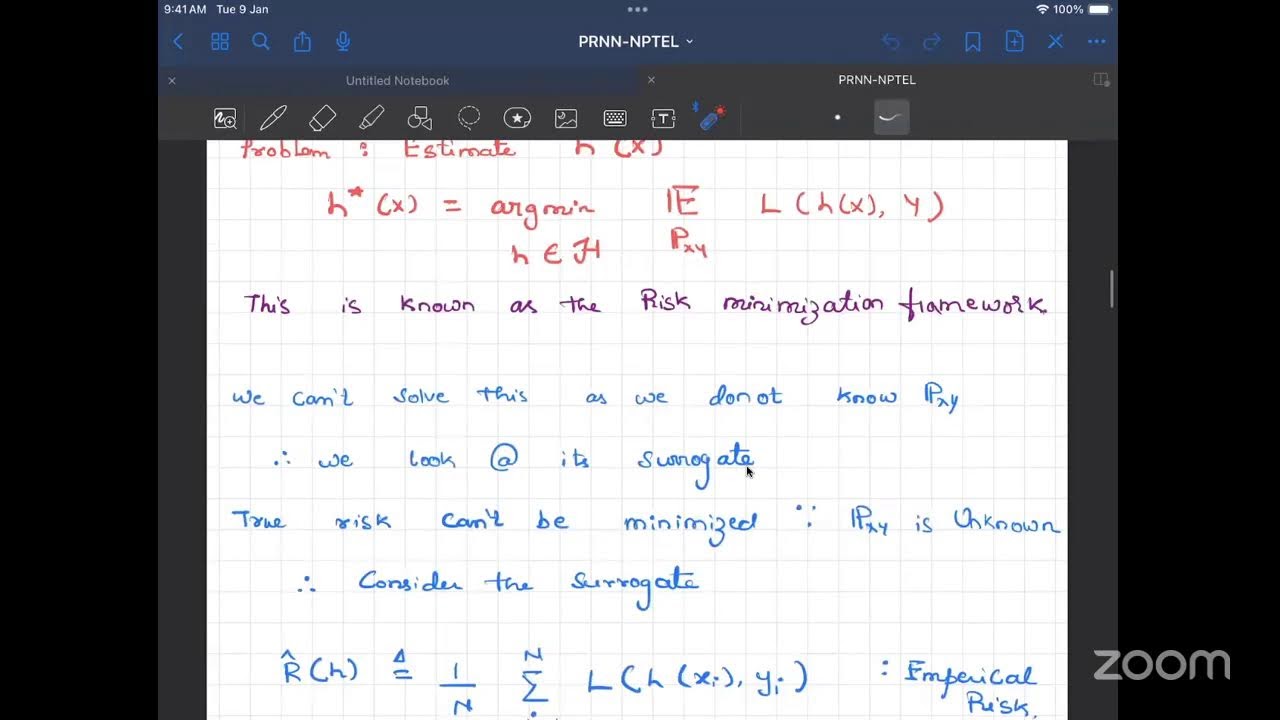 9:41 AM Tue 9 Jan
100%
PRNN-NPTEL
Untitled Notebook
PRNN-NPTEL
Problem : Estimate h (x)
h* (x) = argmin 𝔼 L ( h(x), y )
h ∈ ℋ ℙxy
This is known as the Risk minimization framework.
we can't solve this as we donot know ℙxy
∴ we look @ its surrogate
True risk can't be minimized ∵ ℙxy is Unknown
∴ Consider the surrogate
R̂ (h) ≜ 1/N Σ N L ( h (xi), yi ) : Emperical
Risk.
zoom